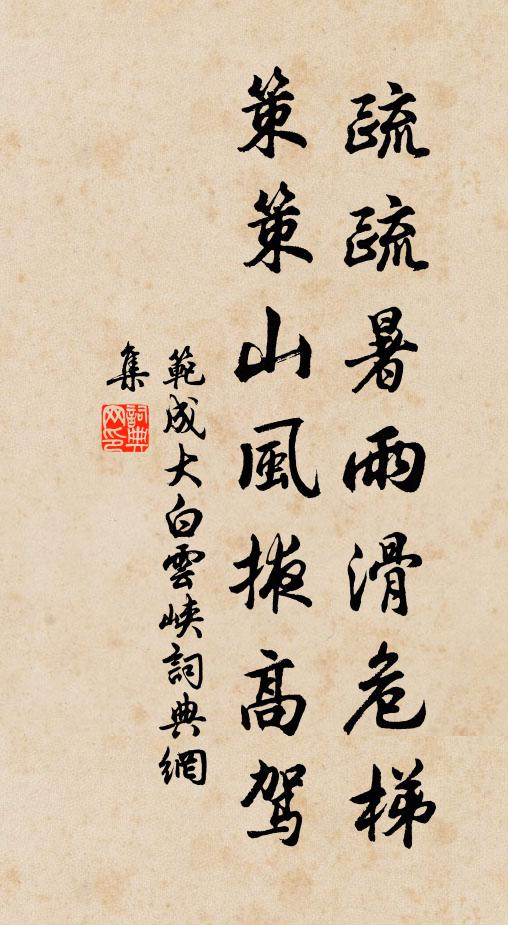 疏疏暑雨滑危梯
策策山風掖高驾
範成大白雲峡詞典網
集
詞典
网印